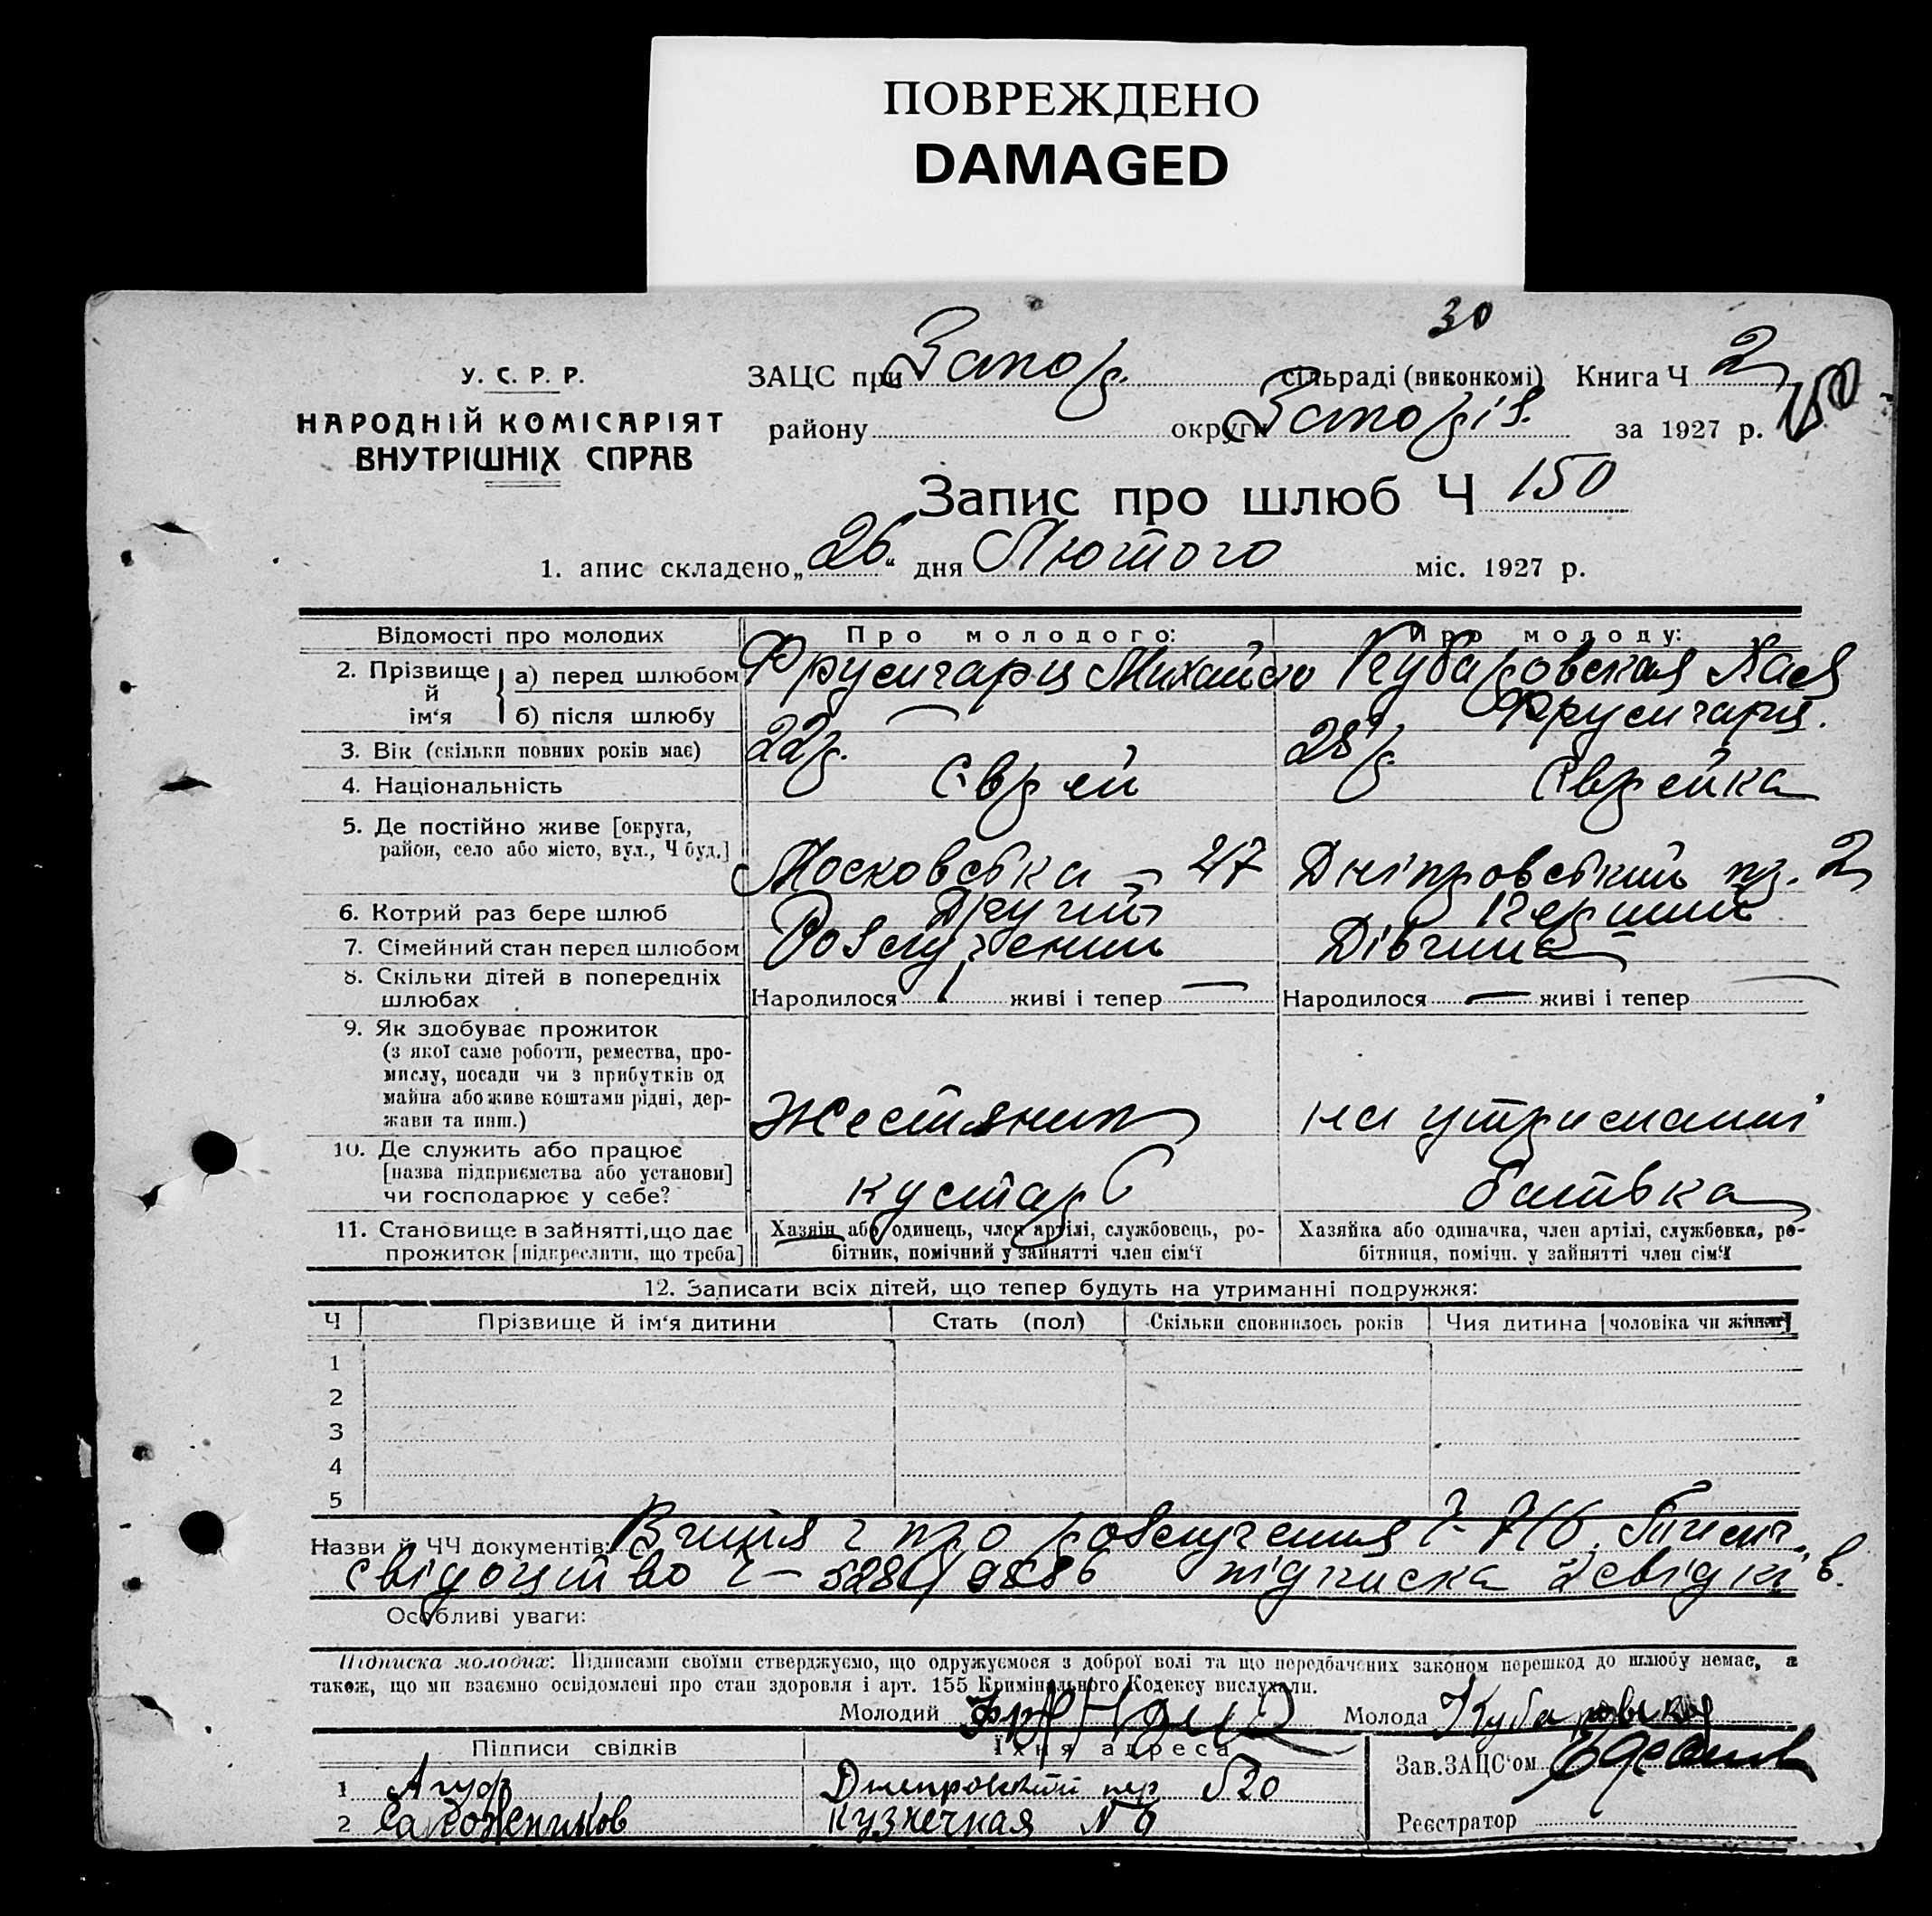 ПОВРЕЖДЕНО
DAMAGED
30
У. С. Р. Р.
НАРОДНІЙ КОМІСАРІЯТ
ВНУТРІШНІХ СПРАВ
ЗАЦС при Запор. сільраді (виконкомі) Книга Ч 2
району округи Запоріз. за 1927 р.
150
Запис про шлюб Ч 150
1. апис складено „26“ дня Лютого міс. 1927 р.
Відомості про молодих Про молодого: Про молоду:
2. Прізвище й ім‘я а) перед шлюбом Михайло Хася
б) після шлюбу
3. Вік (скільки повних років має) 22 р. 28 р.
4. Національність Єврей Єврейка
5. Де постійно живе [округа,
район, село або місто, вул., Ч буд.] Московська – 27 Дніпровський пр. 2
6. Котрий раз бере шлюб Другий Перший
7. Сімейний стан перед шлюбом Розлучений Дівчина
8. Скільки дітей в попередніх
шлюбах Народилося 1 живі і тепер — Народилося — живі і тепер —
9. Як здобуває прожиток
(з якої саме роботи, ремества, про-
мислу, посади чи з прибутків од
майна або живе коштами рідні, дер-
жави та инш.) Жестяник на утриманні
10. Де служить або працює
[назва підприємства або установи]
чи господарює у себе? кустар батька
11. Становище в зайнятті, що дає
прожиток [підкреслити, що треба]
Хазяїн або одинець, член артілі, службовець, ро-
бітник, помічний у зайнятті член сім‘ї
Хазяйка або одиначка, член артілі, службовка, ро-
бітниця, помічн. у зайнятті член сім‘ї
12. Записати всіх дітей, що тепер будуть на утриманні подружжя:
Ч Прізвище й ім‘я дитини Стать (пол) Скільки сповнилось років Чия дитина [чоловіка чи жінки]
1
2
3
4
5
Назви й ЧЧ документів: Витяг про розлучення Ч-
свідоцтво Ч – підписка 2 свідків.
Особливі уваги:
Підписка молодих: Підписами своїми стверджуємо, що одружуємося з доброї волі та що передбачених законом перешкод до шлюбу немає, а
також, що ми взаємно освідомлені про стан здоровля і арт. 155 Кримінального Кодексу вислухали.
Молодий Молода
Підписи свідків Їхня адреса Зав. ЗАЦС‘ом
1 Днепровский пер 20
2 Кузнечная № 6 Реєстратор